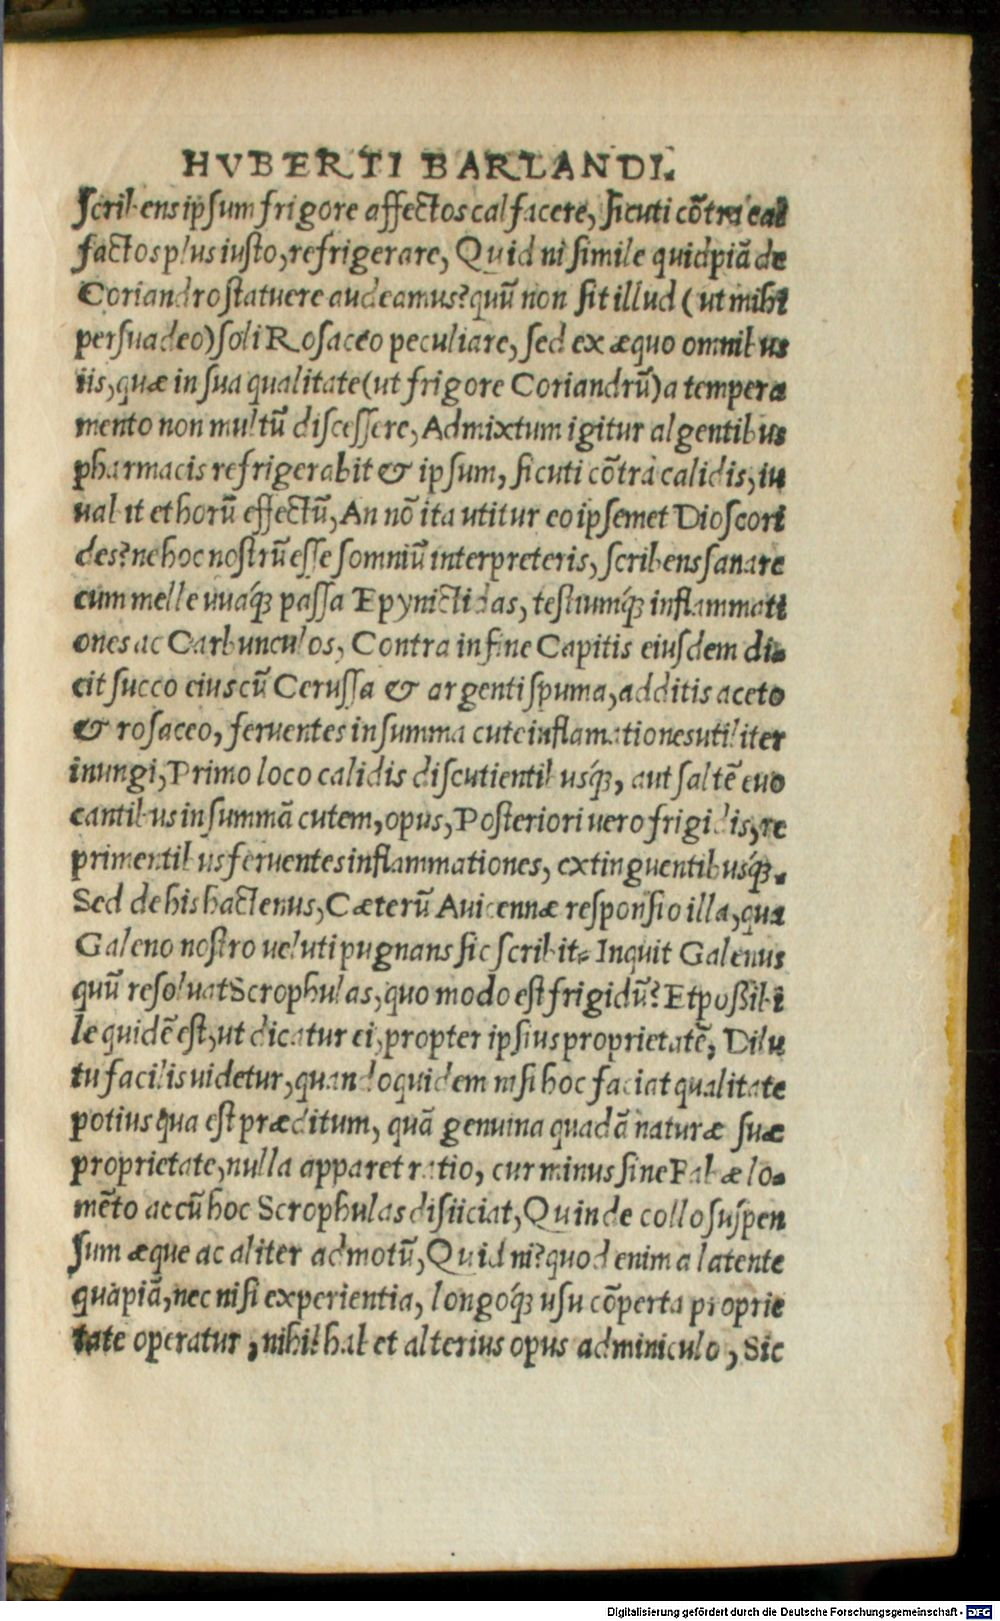 HVBERTI BARLANDI.
scribens ipsum frigore affectos calfacere, sicuti cõtra cal
factos plus iusto, refrigerare, Quid ni simile quidpiã de
Coriandro statuere audeamus? quũ non sit illud (ut mihi
persuadeo) soli Rosaceo peculiare, sed ex æquo omnibus
iis, quæ in sua qualitate (ut frigore Coriandrũ) a tempera
mento non multũ discessere, Admixtum igitur algentibus
pharmacis refrigerabit & ipsum, sicuti cõtra calidis, iu
uabit et horũ effectũ, An nõ ita utitur eo ipsemet Dioscori
des? ne hoc nostrũ esse somniũ interpreteris, scribens sanare
cum melle uuaq́; passa Epynictidas, testiumq́; inflammati
ones ac Carbunculos, Contra in fine Capitis eiusdem di-
cit succo eius cũ Cerussa & argenti spuma, additis aceto
& rosaceo, feruentes in summa cute inflamationes utiliter
inungi, Primo loco calidis discutientibusq́;, aut saltẽ euo
cantibus in summã cutem, opus, Posteriori uero frigidis, re
primentibus feruentes inflammationes, extinguentibusq́;.
Sed de his hactenus, Cæterũ Auicennæ responsio illa, qua
Galeno nostro ueluti pugnans sic scribit. Inquit Galenus
quũ resoluat Scrophulas, quo modo est frigidũ? Et possibi
le quidẽ est, ut dicatur ei, propter ipsius proprietatẽ, Dilu
tu facilis uidetur, quandoquidem nisi hoc faciat qualitate
potius qua est præditum, quã genuina quadã naturæ suæ
proprietate, nulla apparet ratio, cur minus sine Fabæ lo-
mẽto ac cũ hoc Scrophulas disiiciat, Quin de collo suspen
sum æque ac aliter admotũ, Quid ni? quod enim a latente
quapiã, nec nisi experientia, longoq́; usu cõperta proprie
tate operatur, nihil habet alterius opus adminiculo, Sic
Digitalisierung gefördert durch die Deutsche Forschungsgemeinschaft - DFG